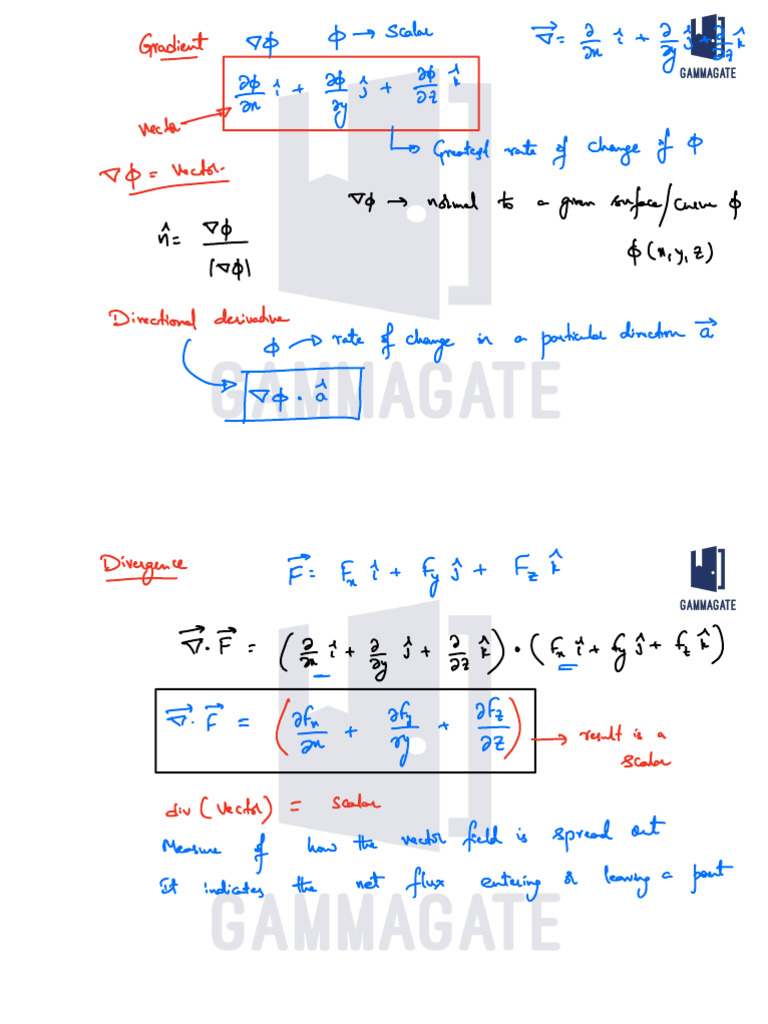 Gradient ∇ϕ ϕ → Scalar ∇⃗ = ∂/∂x î + ∂/∂y ĵ + ∂/∂z k̂
GAMMAGATE
∂ϕ/∂x î + ∂ϕ/∂y ĵ + ∂ϕ/∂z k̂
Vector
↳ Greatest rate of change of ϕ
∇ϕ = Vector.
∇ϕ → normal to a given surface/curve ϕ
n̂ = ∇ϕ/|∇ϕ|
ϕ(x,y,z)
Directional derivative
ϕ → rate of change in a particular direction a⃗
∇ϕ . â
GAMMAGATE
Divergence F⃗ = Fx î + Fy ĵ + Fz k̂
GAMMAGATE
∇⃗.F⃗ = (∂/∂x î + ∂/∂y ĵ + ∂/∂z k̂) . (Fx î + fy ĵ + fz k̂)
∇⃗.F⃗ = (∂Fx/∂x + ∂Fy/∂y + ∂Fz/∂z) → result is a
scalar
div (Vector) = Scalar
Measure of how the vector field is spread out
It indicates the net flux entering or leaving a point
GAMMAGATE